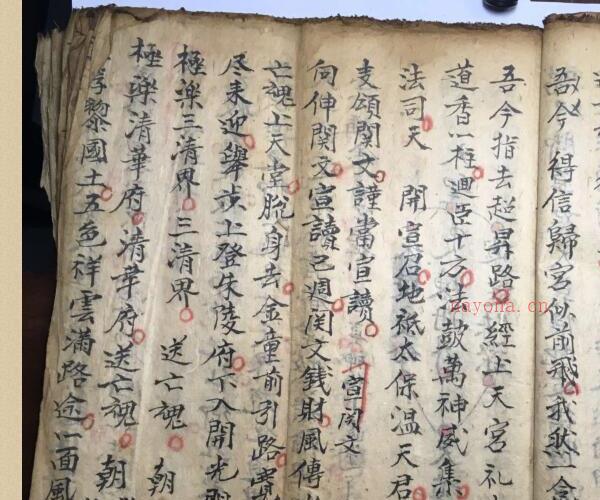 吾今得信歸宮
我然一令
吾今指去超昇路經上天宮礼
道香一炷迴 十方法鼓萬神威集
法司天 開宣召地祇太保温天君
支頒関文謹當宣讀 宣関文
向伸関文宣讀已週関文錢財風傳
亡魂上天堂脱身去金童前引路寶
尽来迎舉步上登朱陵府下入開光
極樂三清界三清界 送亡魂 朝
極樂清華府清華府送亡魂 朝
黎國土五色祥雲滿路途一面風
zayona.cn